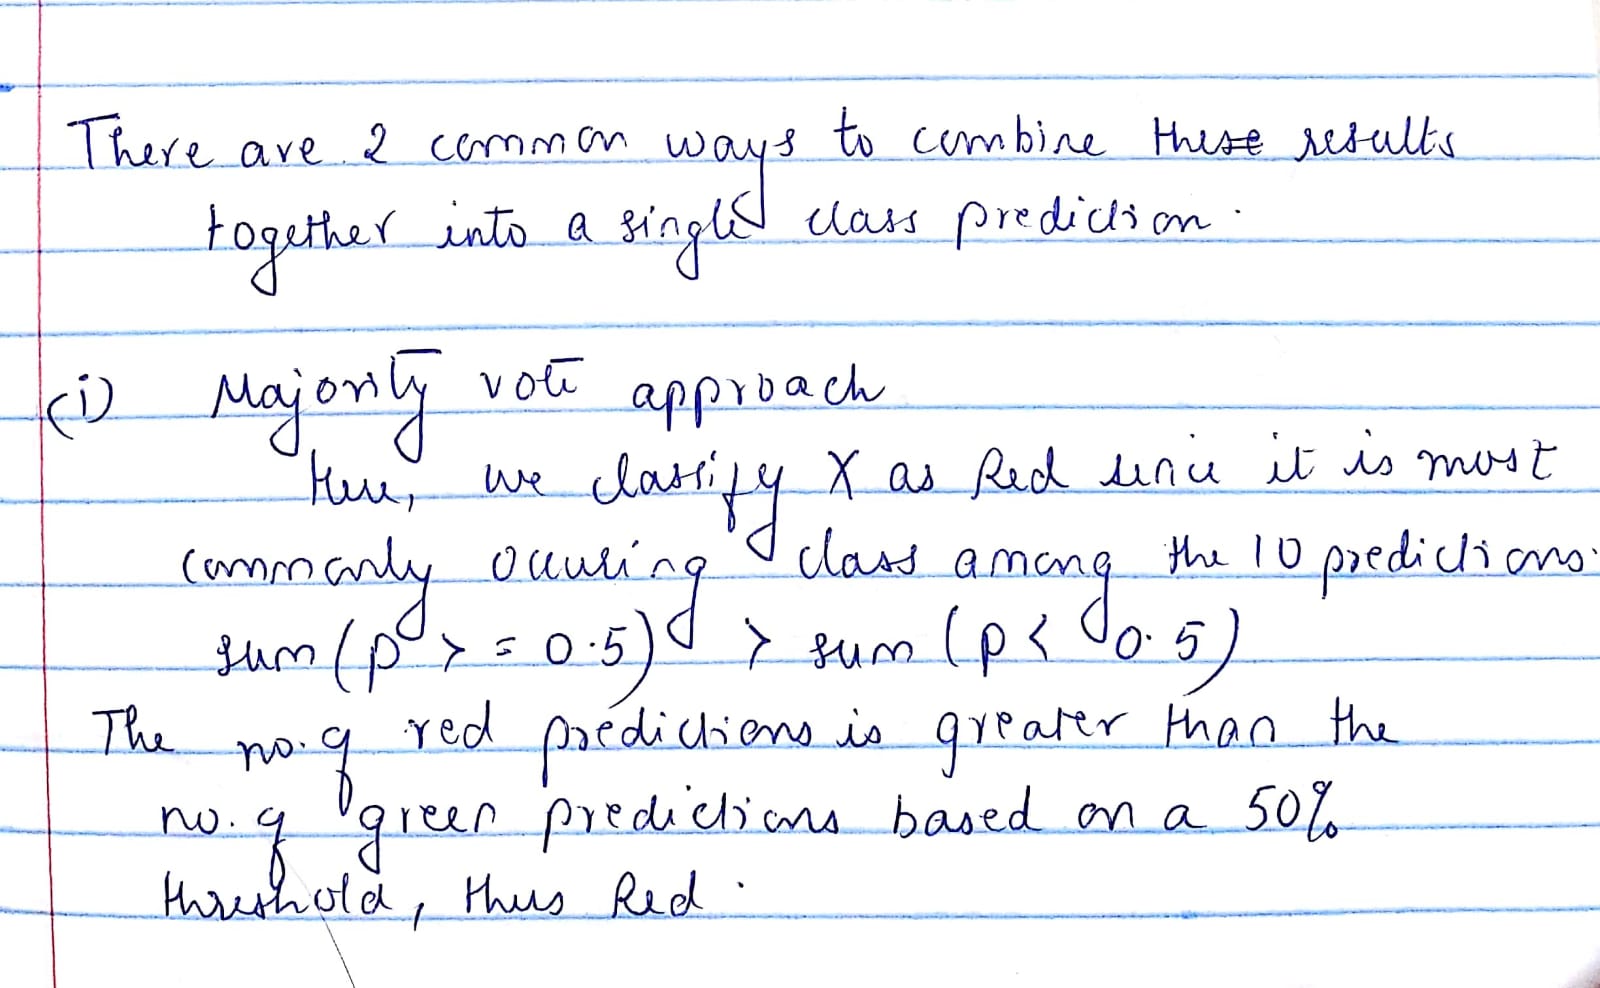 There are 2 common ways to combine these results
together into a single class prediction.
(i) Majority vote approach
Here, we classify X as Red since it is most
commonly occuring class among the 10 predictions.
sum (p >= 0.5) > sum (p < 0.5)
The no. of red predictions is greater than the
no. of green predictions based on a 50%
threshold, thus Red.